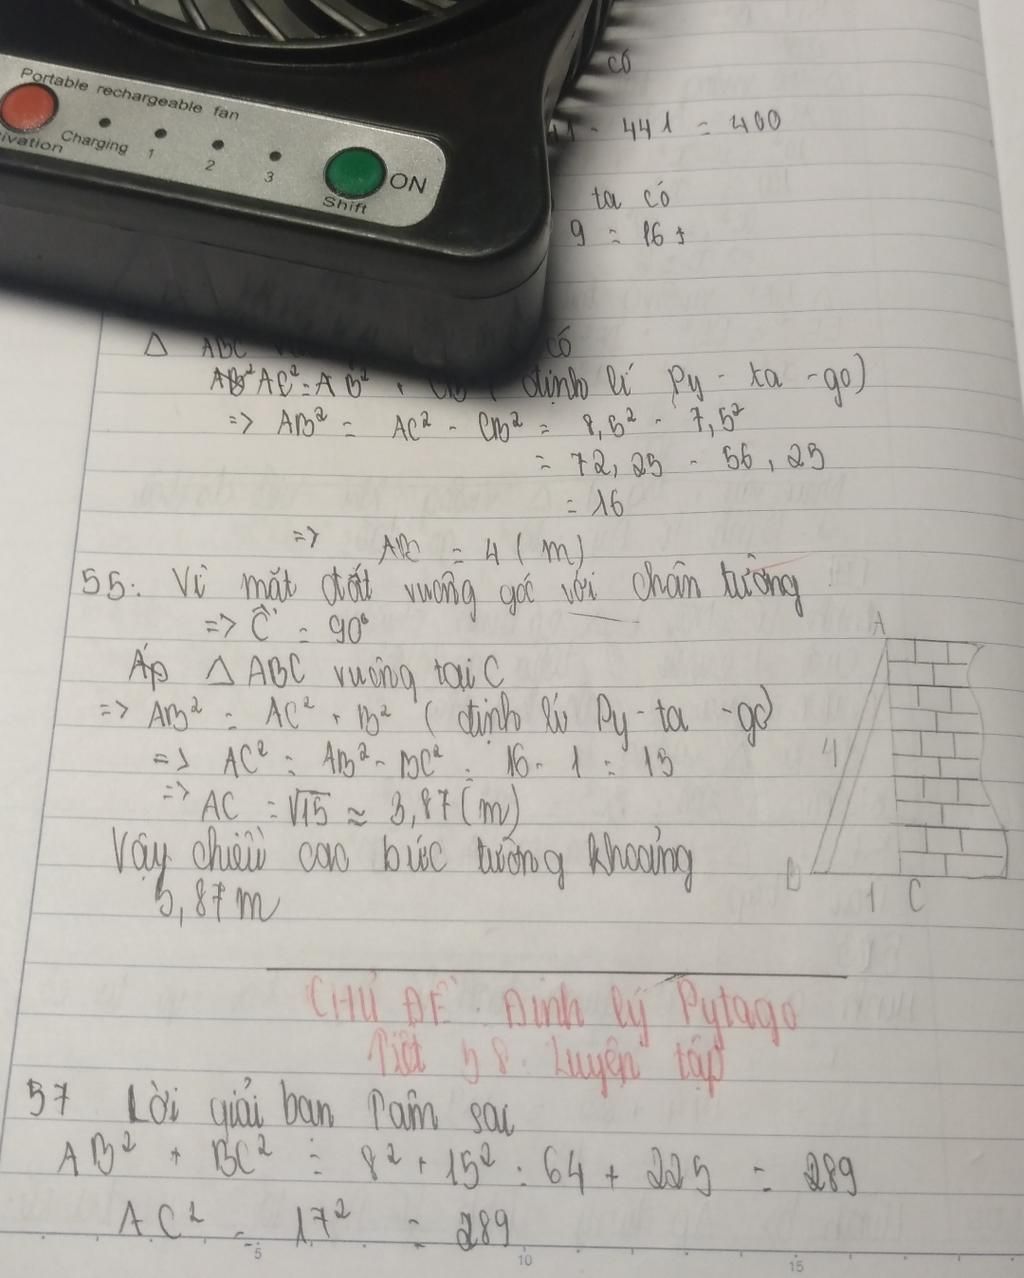 Portable rechargeable fan
ivation Charging 1 2 3 Shift ON
có
441 = 400
ta có
9 = 16 +
Δ ABC có
AC² = AB² + định lí Py - ta - go)
=> AB² = AC² - CB² = 8,5² - 7,5²
= 72,25 - 56,25
= 16
=> AB = 4 (m)
55: Vì mặt đất vuông góc với chân tường
=> Ĉ = 90°
Áp Δ ABC vuông tại C
=> AB² = AC² + B² (định lí Py - ta - go)
=> AC² = AB² - BC² = 16 - 1 = 15
=> AC = √15 ≈ 3,87 (m)
Vậy chiều cao bức tường khoảng
3,87 m
A
4
B 1 C
CHỦ ĐỀ: Định lý Pytago
Tiết 38. Luyện tập
57 Lời giải bạn Tâm sai
AB² + BC² = 8² + 15² = 64 + 225 = 289
AC² = 17² = 289
5 10 15